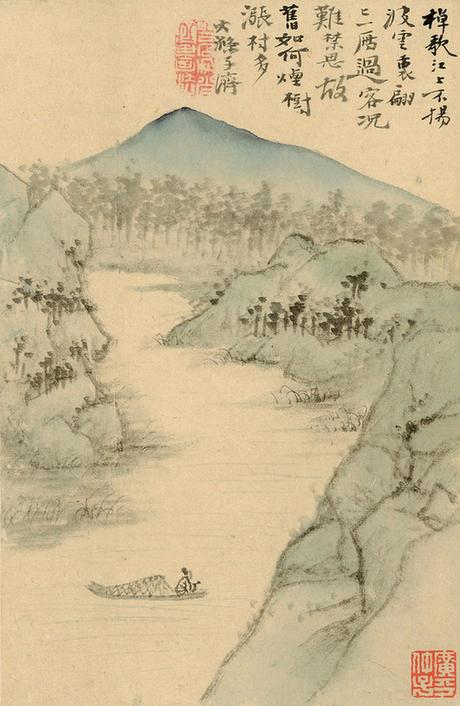 棹歌江上不揚
波雲裏翩
過客况
難禁思故
舊如何煙樹
漲村多
大滌子濟
廣平
仲子